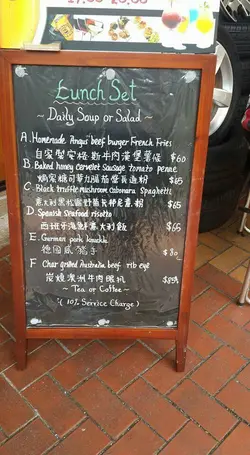 Lunch Set
~ Daily Soup or Salad ~
A. Homemade Angus beef burger French Fries
自家製安格斯牛肉漢堡薯條 $60
B. Baked honey Cervelet Sausage tomato penne
焗蜜糖司華力腸茄醬長通粉 $65
C. Black truffle mushroom Cabonara Spaghetti
意大利黑松露 $65
D. Spanish Seafood risotto
西班牙海鮮意大利飯 $65
E. German pork knuckle
德國咸豬手 $80
F Char grilled Australia beef rib eye
炭燒澳洲牛肉眼扒
~ Tea or Coffee ~
( 10% Service Charge )